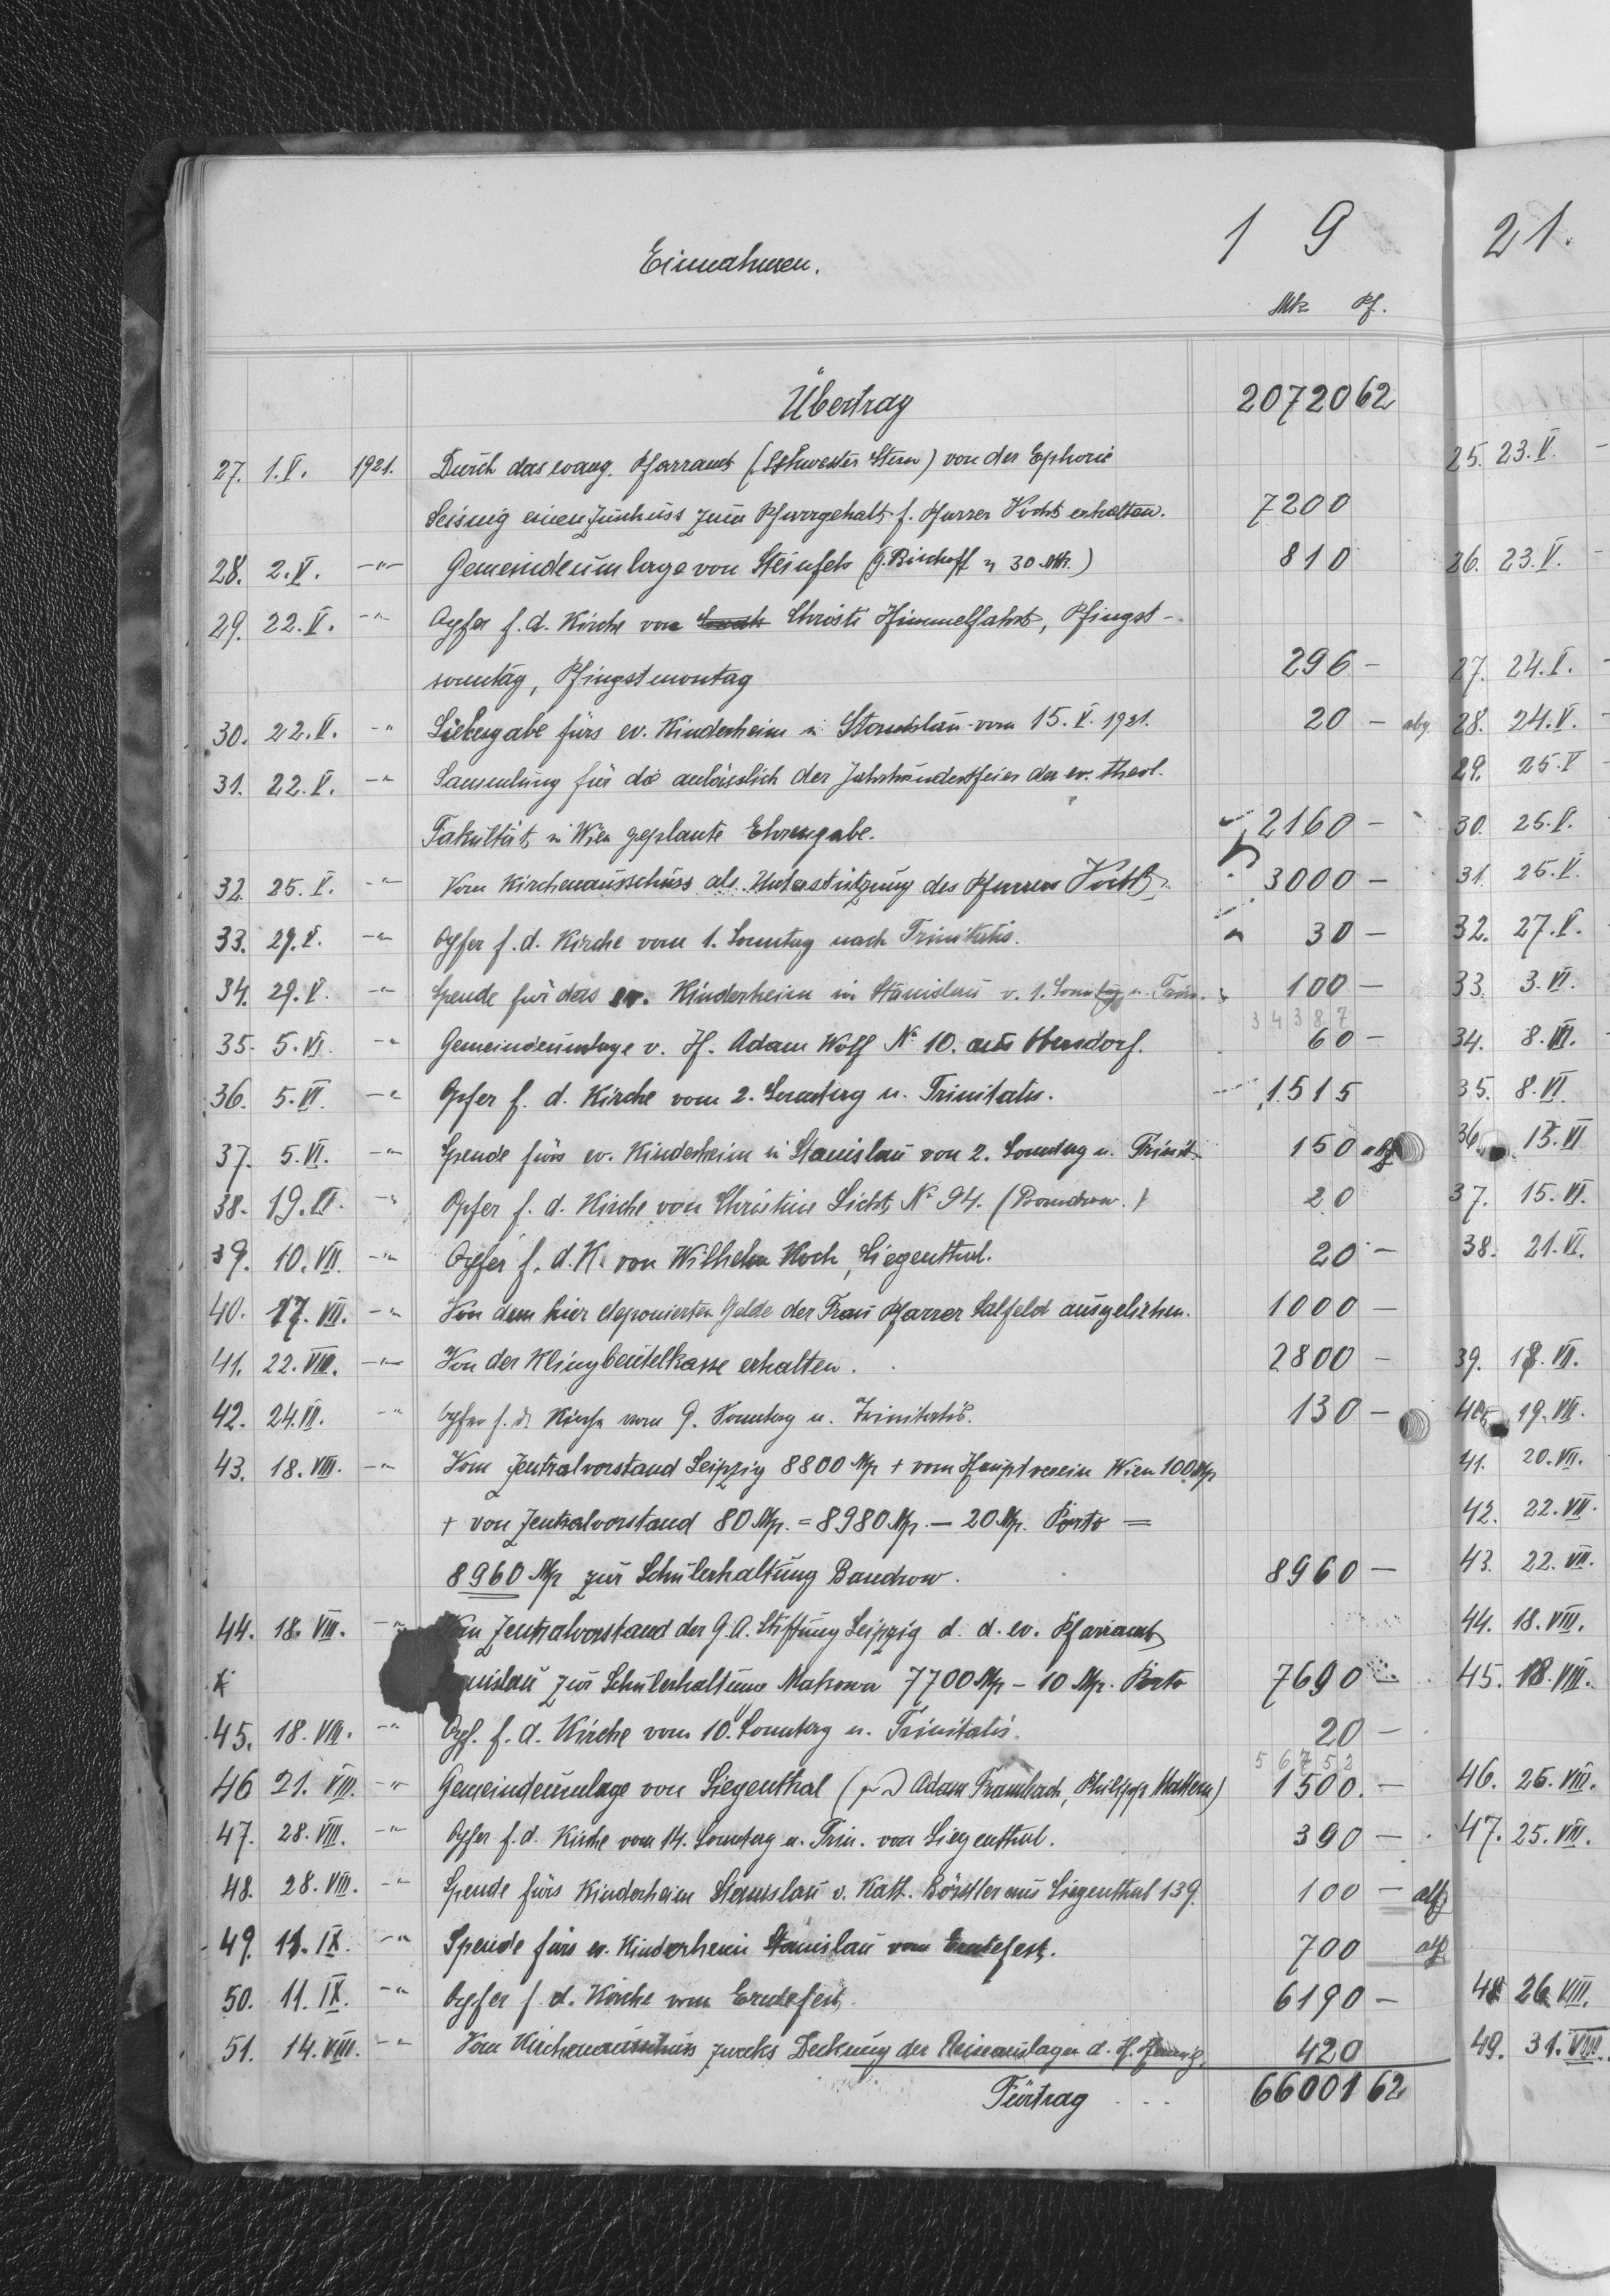 Einnahmen. 1 9 21.
Mk Pf.
Übertrag 20720 62
27. 1.V. 1921. Durch das evang. Pfarramt (Schwester Stern) von der Ephorie
Leisnig einen Zuschuss zum Pfarrgehalt f. Pfarrer Vocht erhalten. 7200
28. 2.V. -"- Gemeindeumlage von Steinfels (J. Bischoff 30 Mk.) 810
29. 22.V. -"- Opfer f. d. Kirche von Christi Himmelfahrt, Pfingst-
sonntag, Pfingstmontag 296 -
30. 22.V. -"- Liebesgabe fürs ev. Kinderheim in Stanislau vom 15.V.1921. 20 - abg.
31. 22.V. -"- Sammlung für die anlässlich der Jahrhundertfeier der ev. theol.
Fakultät in Wien geplante Ehrengabe. 2160 -
32. 25.V. -"- Vom Kirchenausschuss als Unterstützung des Pfarrers 3000 -
33. 29.V. -"- Opfer f. d. Kirche vom 1. Sonntag nach Trinitatis. 30 -
34. 29.V. -"- Spende für das ev. Kinderheim in Stanislau v. 1. Sonntag n. Trin. 100 -
34387
35. 5.VI. -"- Gemeindeumlage v. H. Adam Wolf No 10. aus Obersdorf. 60 -
36. 5.VI. -"- Opfer f. d. Kirche vom 2. Sonntag n. Trinitatis. 1515
37. 5.VI. -"- Spende fürs ev. Kinderheim in Stanislau von 2. Sonntag n. Trinit. 150
38. 19.VI. -"- Opfer f. d. Kirche von Christine Licht No 94. (Bandrow.) 20
39. 10.VII. -"- Opfer f. d. K. von Wilhelm Koch, Siegenthal. 20 -
40. 17.VII. -"- Von dem hier deponierten Gelde der Frau Pfarrer Salfeld ausgeliehen. 1000 -
41. 22.VIII. -"- Von der Klingbeutelkasse erhalten. 2800 -
42. 24.VII. -"- Opfer f. d. Kirche vom 9. Sonntag n. Trinitatis. 130 -
43. 18.VIII. -"- Vom Zentralvorstand Leipzig 8800 Mp + vom Hauptverein Wien 100 Mp
+ von Zentralvorstand 80 Mp. = 8980 Mp. - 20 Mp. Porto =
8960 Mp zur Schulerhaltung Bandrow. 8960 -
44. 18.VIII. -"- Zentralvorstand der G.A. Stiftung Leipzig d. d. ev. Pfarramt
nislau zur Schulerhaltung Makowa 7700 Mp - 10 Mp. Porto 7690 -
45. 18.VIII. -"- Opf. f. d. Kirche vom 10. Sonntag n. Trinitatis. 20 -
56752
46 21.VIII. -"- Gemeindeumlage von Siegenthal (Adam Trambach, Philipp Mattern) 1500. -
47. 28.VIII. -"- Opfer f. d. Kirche vom 14. Sonntag n. Trin. von Siegenthal. 390 -
48. 28.VIII. -"- Spende fürs Kinderheim Stanislau v. Kath. aus Siegenthal 139. 100 -
49. 11.IX. -"- Spende fürs ev. Kinderheim Stanislau vom Erntefest. 700
50. 11.IX. -"- Opfer f. d. Kirche vom Erntefest. 6190 -
51. 14.VIII. -"- Vom Kirchenausschuss zwecks Deckung der Reiseauslagen d. H. 420
Fürtrag . . . 66001 62
25. 23.V. -
26. 23.V. -
27. 24.V. -
28. 24.V. -
29. 25.V -
30. 25.V.
31. 25.V.
32. 27.V.
33. 3.VI.
34. 8.VI.
35. 8.VI.
36. 13.VI
37. 15.VI.
38. 21.VI.
39. 18.VII.
40. 19.VII.
41. 20.VII.
42. 22.VII.
43. 22.VII.
44. 18.VIII.
45. 18.VIII.
46. 25.VIII.
47. 25.VIII.
48 26.VIII.
49. 31.VIII.